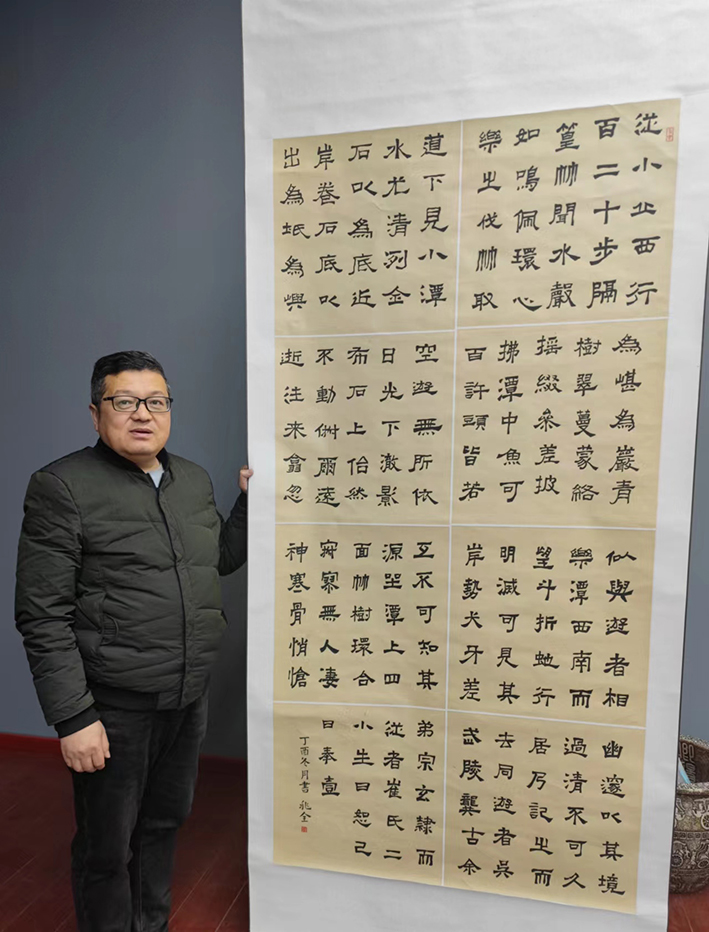 從小丘西行
百二十步隔
篁竹聞水聲
如鳴佩環心
樂之伐竹取
道下見小潭
水尤清列金
石以為底近
岸卷石底以
出為坻為嶼
為嵁為巖青
樹翠蔓蒙絡
搖綴參差披
拂潭中魚可
百許頭皆若
空遊無所依
日光下澈影
布石上佁然
不動俶爾遠
逝往來翕忽
似與遊者相
樂潭西南而
望斗折虵行
明滅可見其
岸勢犬牙差
互不可知其
源坐潭上四
面竹樹環合
寂寥無人淒
神寒骨悄愴
幽邃以其境
過清不可久
居乃記之而
去同遊者吳
武陵龔古余
弟宗玄隸而
從者崔氏二
小生曰恕己
曰奉壹
丁酉冬月書